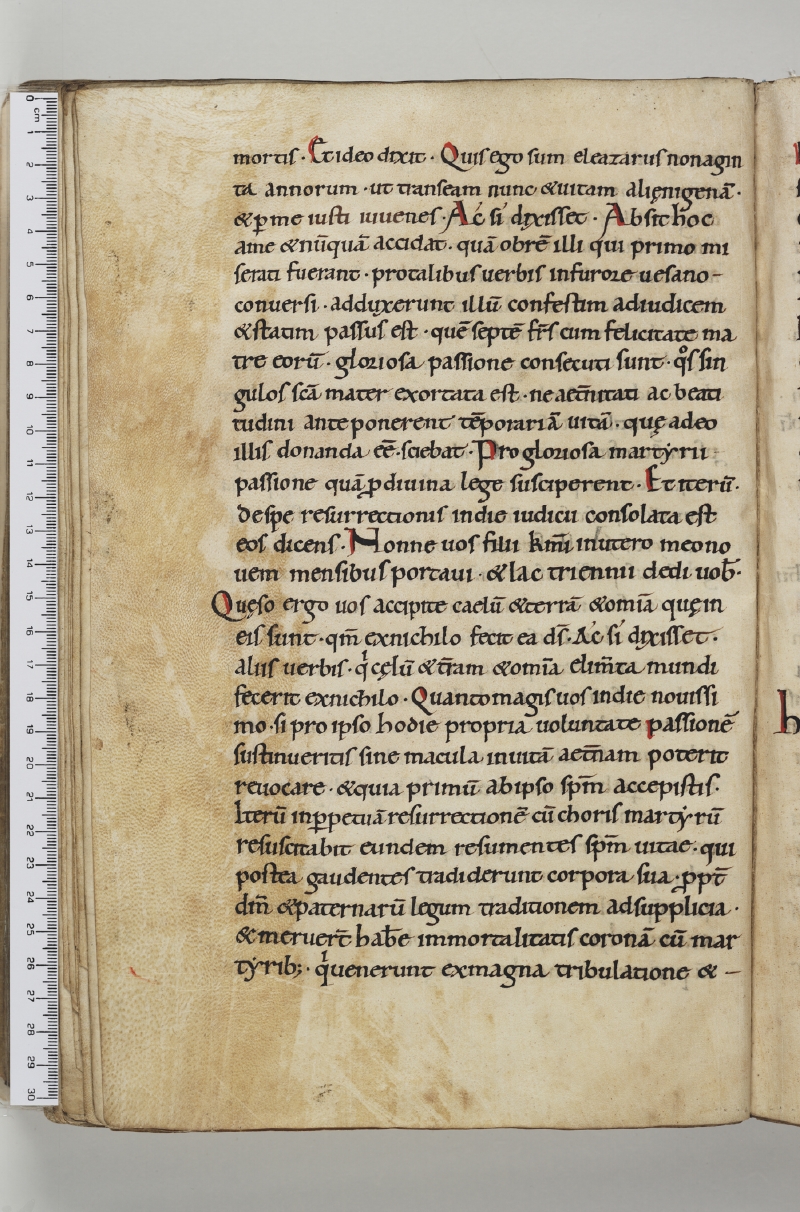 mortis · Et ideo dixit · Quis ego sum eleazarus nonagin
ta annorum · ut transeam nunc &uitam alięnigenā ·
& ꝑ me iusti iuuenes · Ac si dixisset · Absit hoc
ame & nūquā accidat · quā obrē illi qui primo mi
serati fuerant · protalibus uerbis infurore uesano –
conuersi · adduxerunt illū confestim adiudicem
& statim passus est · quē septē fr̄s cum felicitate ma
tre eorū · gloriosa passione consecuti sunt · qͦs sin
gulos sc̄a mater exortata est · ne aet̄nitati ac beati
tudini anteponerent tēporariā uitā · quę adeo
illis donanda eē · sciebat · Pro gloriosa martyrii
passione quā ꝓ diuina lege susciperent · Et iterū ·
de spe resurrectionis indie iudicii consolata est
eos dicens · Nonne uos filii km̄i inutero meo no
uem mensibus portaui · & lac triennii dedi uob̄ ·
Quęso ergo uos accipite caelū & terrā & om̄ia quę in
eis sunt · qm̄ exnichilo fecit ea ds̄ · Ac si dixisset ·
aliis uerbis · qͥ cęlū & t̄ram & om̄ia elim̄ta mundi
fecerit exnichilo · Quanto magis uos indie nouissi
mo · si pro ipso hodie propria uoluntate passionē
sustinueritis sine macula inuitā aet̄nam poterit
reuocare · & quia primū abipso sp̄m accepistis ·
Iterū inꝑpetuā resurrectionē cū choris martyrū
resuscitabit eundem resumentes sp̄m uitae · qui
postea gaudentes tradiderunt corpora sua · ꝓpt̄
dm̄ & paternarū legum traditionem adsupplicia ·
& meruer̄t hab̄e immortalitatis coronā cū mar
tyrib; · qͥ uenerunt exmagna tribulatione & –